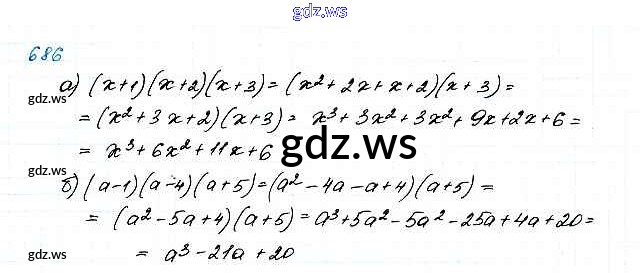 gdz.ws
686
а) (x+1)(x+2)(x+3) = (x²+2x+x+2)(x+3) =
gdz.ws
= (x²+3x+2)(x+3) = x³+3x²+3x²+9x+2x+6 =
= x³+6x²+11x+6
gdz.ws
gdz.ws
б) (a-1)(a-4)(a+5) = (a²-4a-a+4)(a+5) =
= (a²-5a+4)(a+5) = a³+5a²-5a²-25a+4a+20 =
gdz.ws
= a³-21a+20